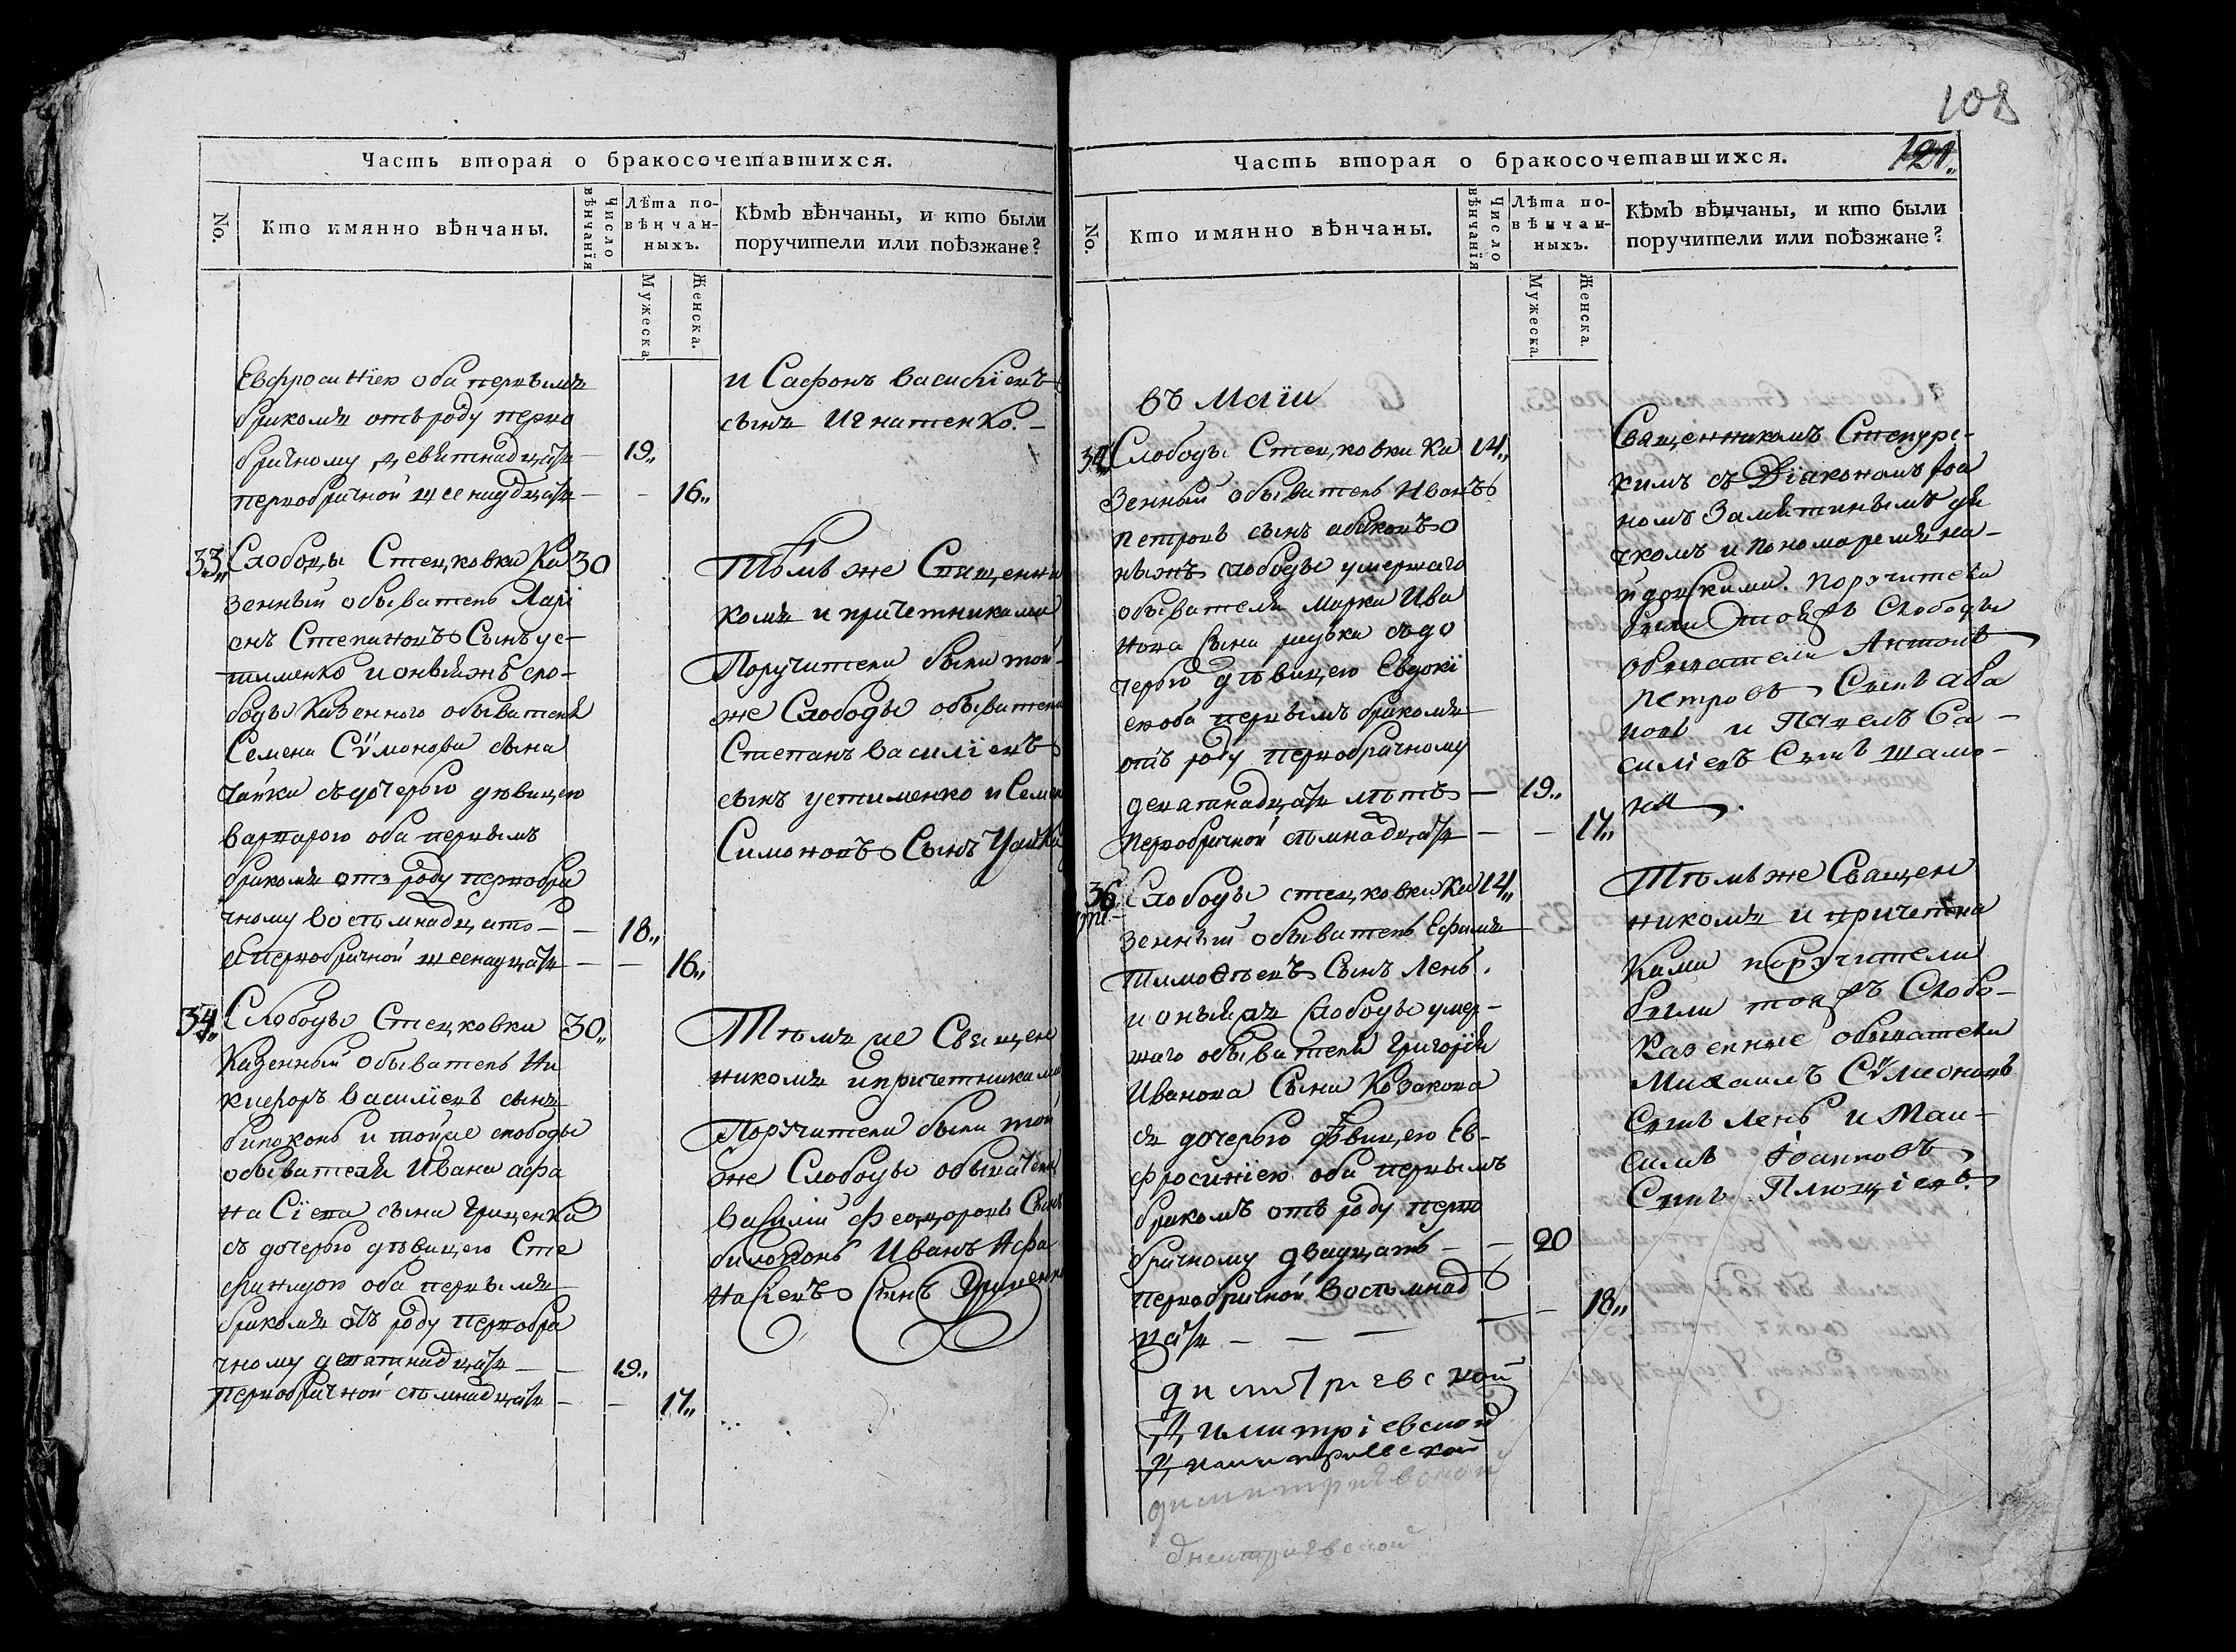 108
Часть вторая о бракосочетавшихся.
No.
Кто имянно вѣнчаны.
Число вѣнчанія
Лѣта повѣнчанныхъ.
Мужеска
Женска.
Кѣмъ вѣнчаны, и кто были
поручители или поѣзжане?
Евфросинїею оба первымъ
бракомъ отъ роду перво
брачному девятнадцать — 19„
первобрачной шеснадцать — — 16„
и Сафонъ Василїевъ
сынъ Игнатенко. —
33„ Слободы Стецковки Ка 30
зенный обыватель Ларї
онъ Степановъ Сынъ ус-
тименко и оныяжъ сло-
боды Казенного обывателя
Семена Сѵмонова сына
Чайки съ дочерью дѣвицею
Варварою оба первымъ
бракомъ отъ роду первобра
чному восемнадцать — — 18„
а первобрачной шеснадцать — — 16„
Тѣмъ же Священни
комъ и причетниками
Поручители были той-
же Слободы обыватели
Степанъ Василїевъ
сынъ устименко и Семенъ
Симоновъ Сынъ Чайка
34„ Слободы Стецковки 30„
Казенный обыватель Ни
кифоръ Василїевъ сынъ
билоконь и тойже слободы
обывателя Ивана Афа
насїева сына Гриценка
съ дочерью дѣвицею Сте
фанидою оба первымъ
бракомъ отъ роду первобра
чному девятнадцать — — 19„
первобрачной семнадцать — — 17„
Тѣмъ же Священ
никомъ и причетниками
Поручители были той
же Слободы обыватели
Василїй Феодоровъ Сынъ
билоконь Иванъ Афа
насїевъ Сынъ Гриценко
Часть вторая о бракосочетавшихся.
121„
No.
Кто имянно вѣнчаны.
Число вѣнчанія
Лѣта повѣнчанныхъ.
Мужеска.
Женска.
Кѣмъ вѣнчаны, и кто были
поручители или поѣзжане?
въ Маїи
Слободы Стецковки Ка 14„
зенный обыватель Иванъ
Петровъ сынъ
ныяжъ слободы умершаго
обывателя Марка Ива
нова сына съ до
черью дѣвицею Евдокї
ею оба первымъ бракомъ
отъ роду первобрачному
девятнадцать лѣтъ — 19„
первобрачной семнадцать — — 17„
Священникомъ
съ Дїакономъ Іоа
номъ дья
чкомъ и пономаремъ
Поручители
были тояжъ Слободы
обыватели Антонъ
Петровъ Сынъ аба
и Павелъ Ва-
силїевъ Сынъ
36 Слободы стецковки Ка 14„
зенный обыватель Ефимъ
Тимоѳеевъ Сынъ Лень
и оныяжъ Слободы умер-
шаго обывателя Григорїя
Иванова Сына Козакова
съ дочерью дѣвицею Ев-
фросинїею оба первымъ
бракомъ отъ роду перво
брачному двадцать — — 20
первобрачной восемнад
цать — — — — 18„
Тѣмъ же Священ
никомъ и причетни
ками поручители
были тояжъ Слобо-
Казенные обыватели
Михаилъ Сѵмеоновъ
Сынъ Лень и Мак-
симъ Іоанновъ
Сынъ
димитриевской
Димитрїевской
Димитрїевской
димитриевской
димитриевской